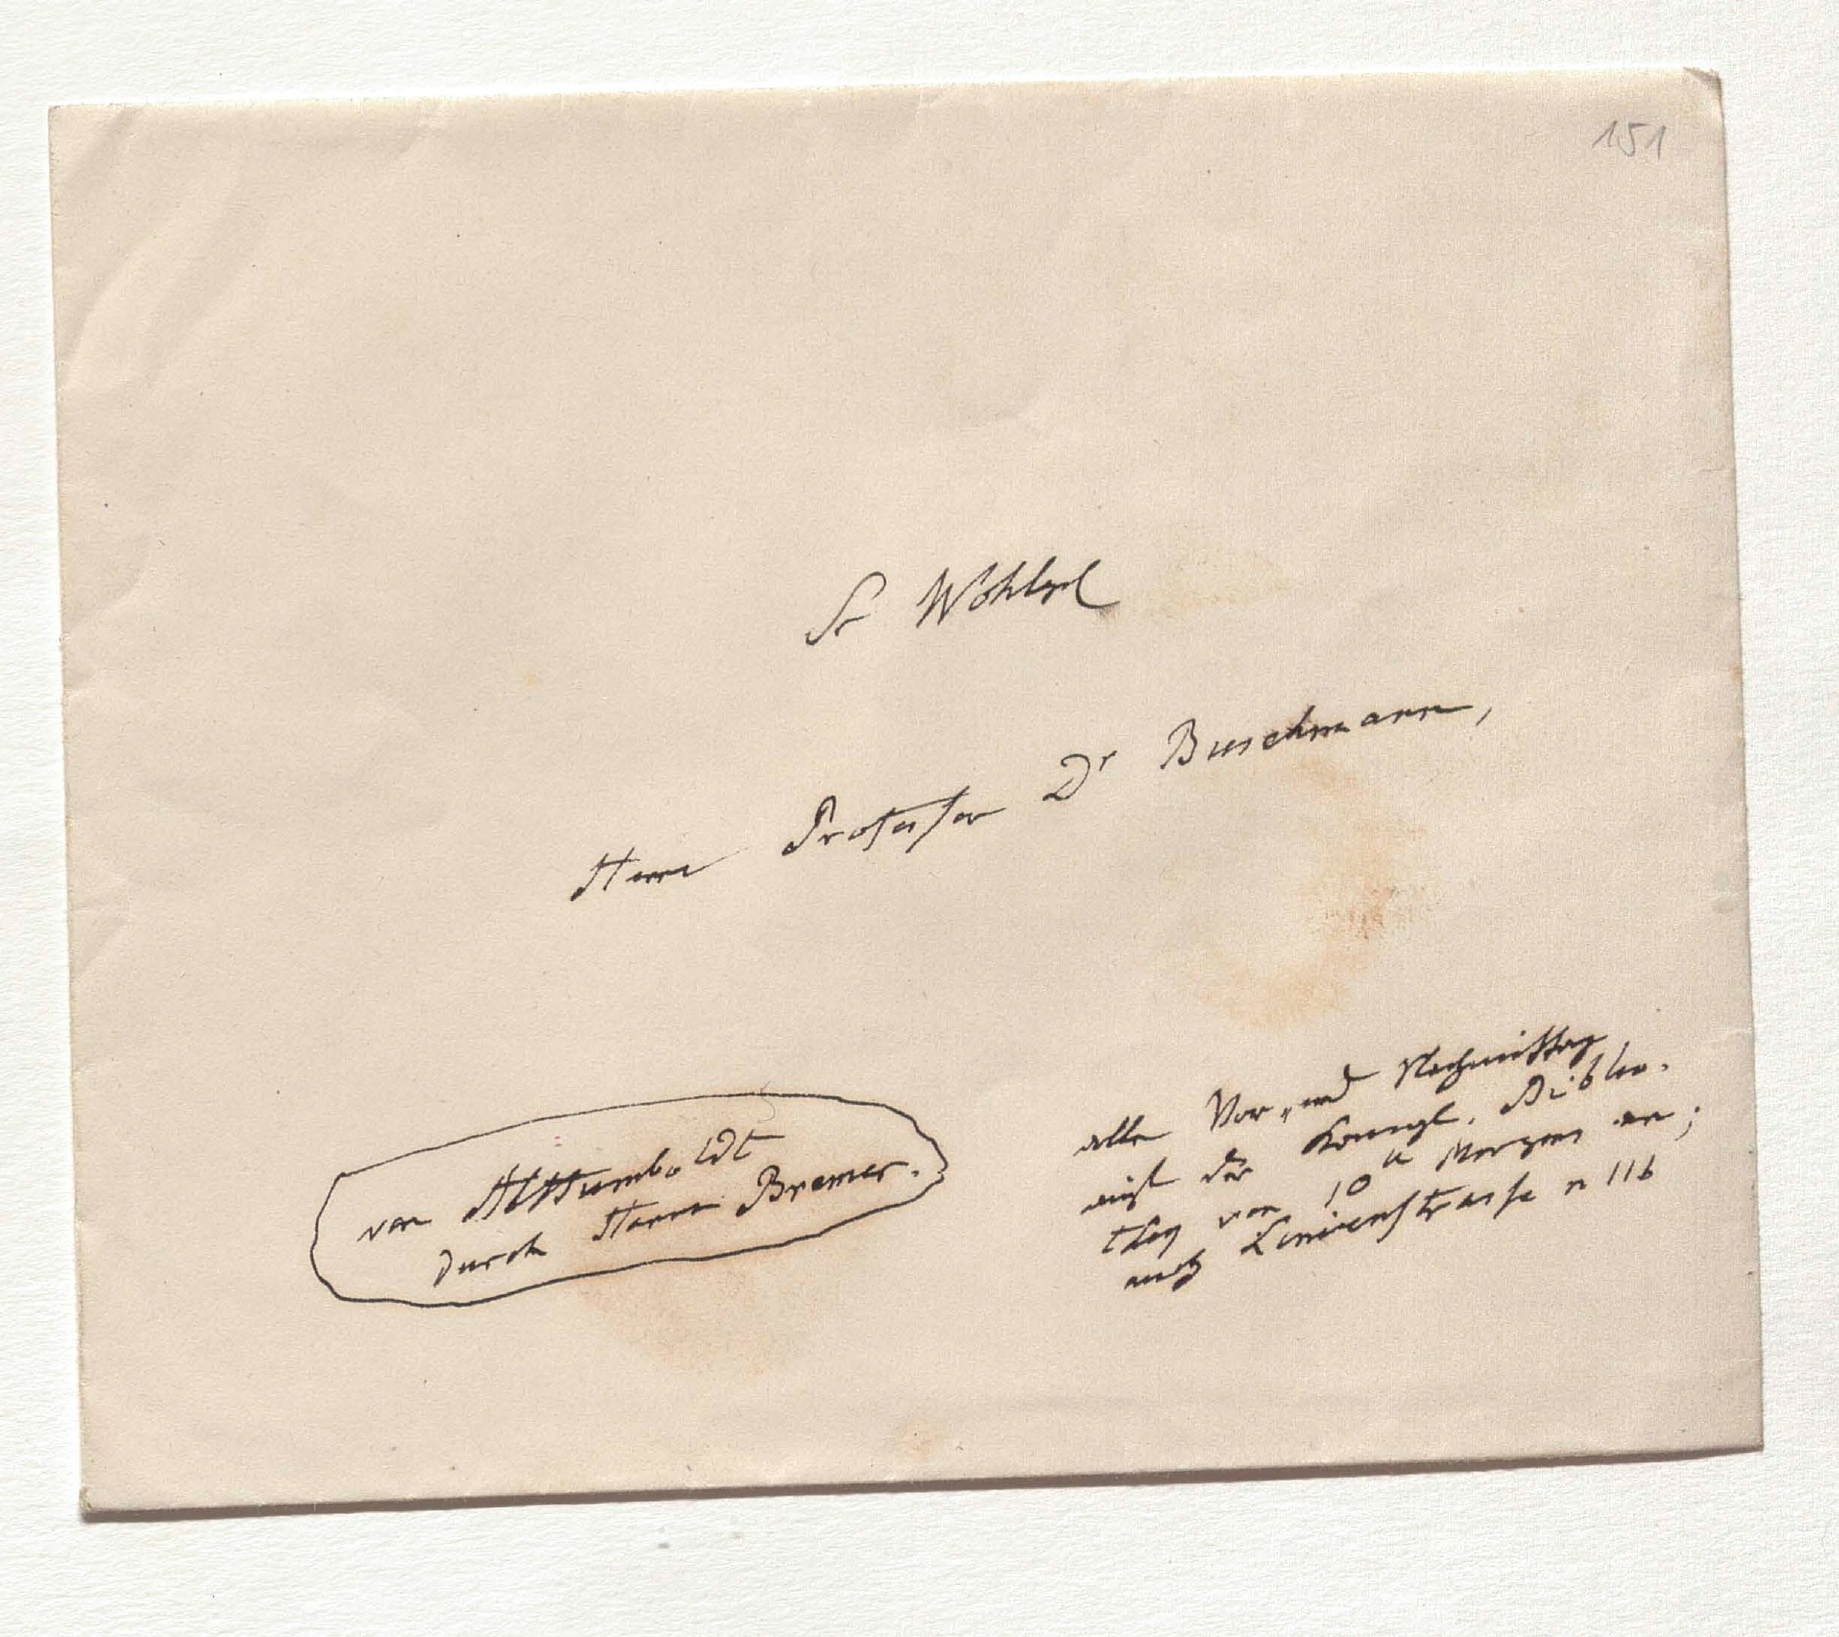 151
Sr Wohlgb
Herrn Professor Dr Buschmann,
von AlHumboldt
durch Herrn Bremer.
alle Vor- und Nachmittag
auf der Königl. Biblio-
thek von 10 u Morgens an;
auch Linienstrasse n 116